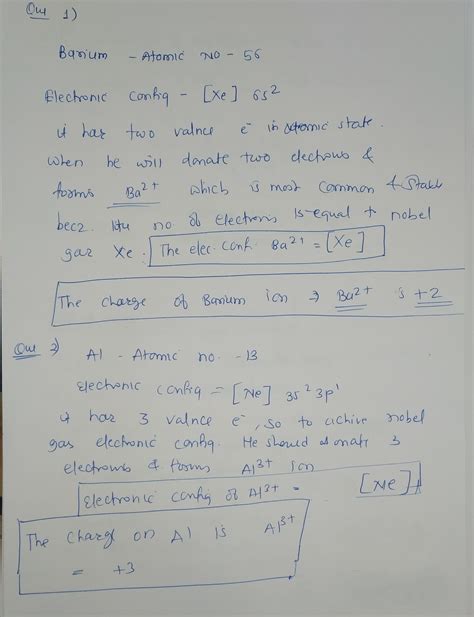 Que 1)
Barium - Atomic No - 56
Electronic Config - [Xe] 6s²
it has two valnce e⁻ in atomic state.
when he will donate two electrons &
forms Ba²⁺ which is most common & Stable
becz. no of electrons is equal to nobel
gas Xe. The elec. Conf. Ba²⁺ = [Xe]
The charge of Barium ion ⇒ Ba²⁺ is +2
Que 2)
Al - Atomic no. - 13
Electronic config = [Ne] 3s² 3p¹
it has 3 valnce e⁻, so to achive nobel
gas electronic config. He should donate 3
electrons & forms Al³⁺ ion
Electronic config of Al³⁺ = [Ne]
The Charge on Al is Al³⁺
= +3